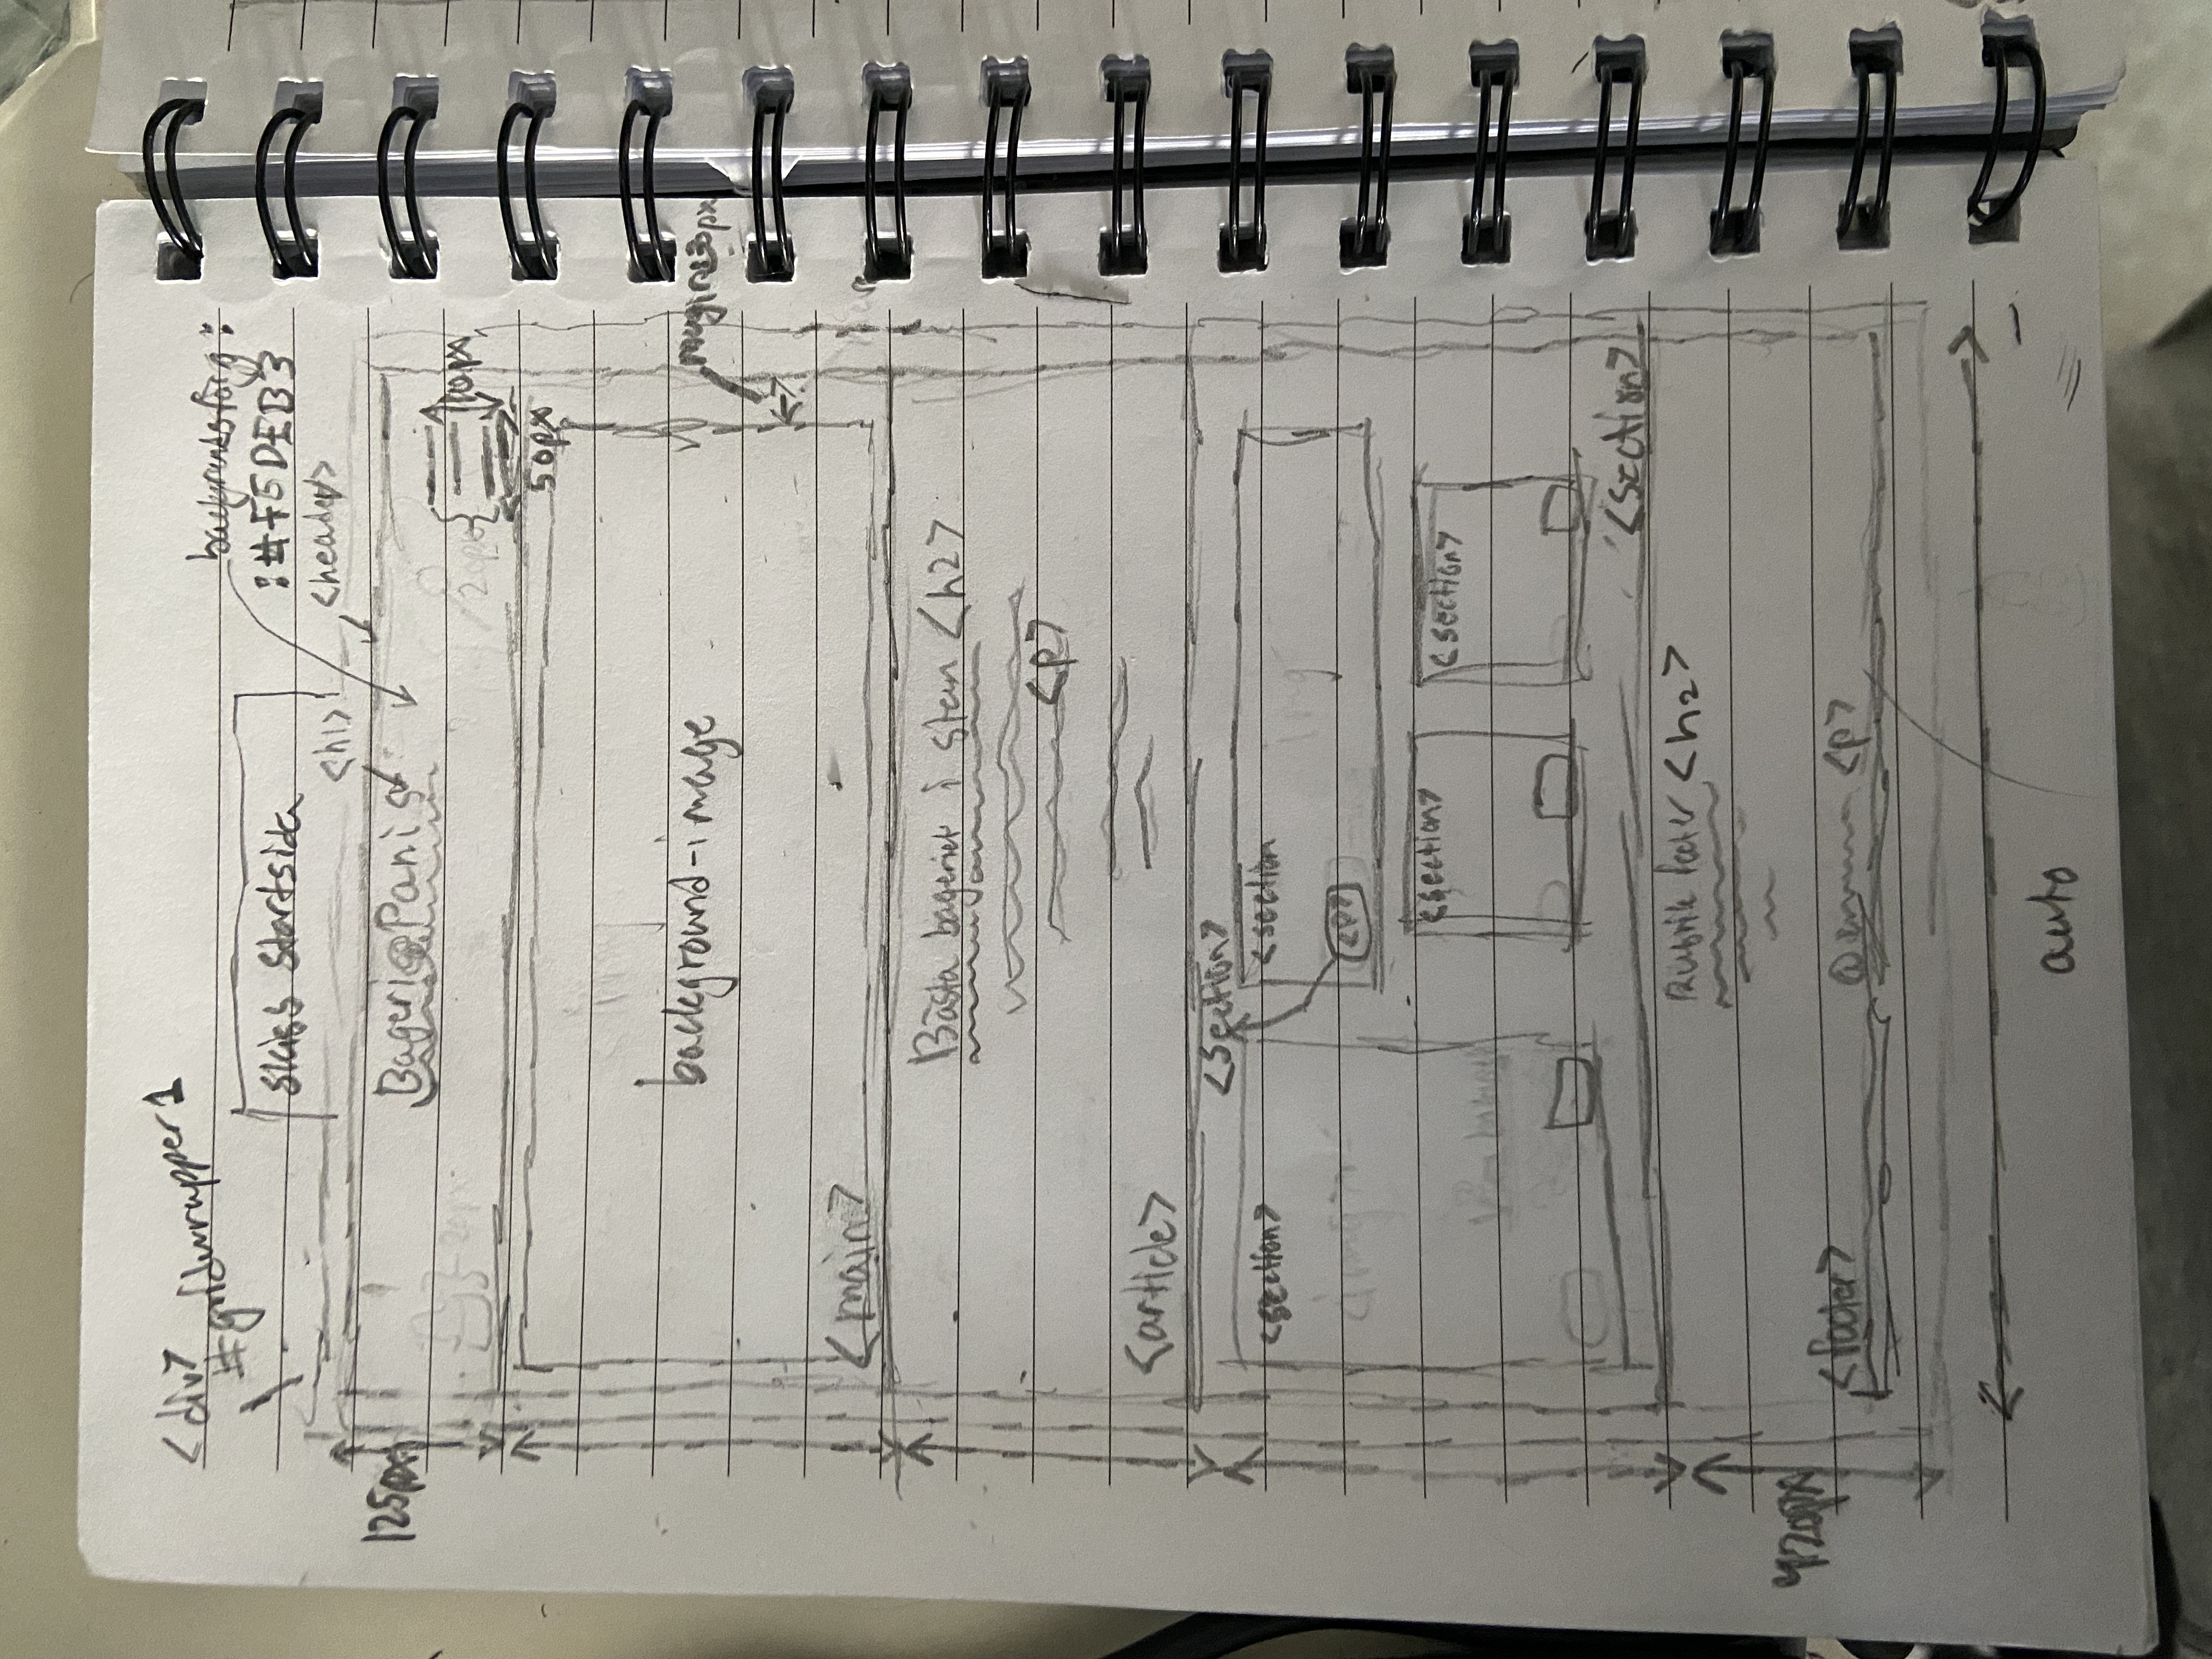 <div>
#gridwrapper1
backgrundsfärg:
Skiss Startsida
:#F5DEB3
<h1>
<header>
125px
Bageri@Panis
20px
20px
10px
50px
background-image
<main>
Bästa bageriet i stan <h2>
<p>
<article>
<section>
<section>
<section
img
<p>
<section>
<section>
<section>
Rubrik footer <h2>
420px
<footer>
<p>
auto